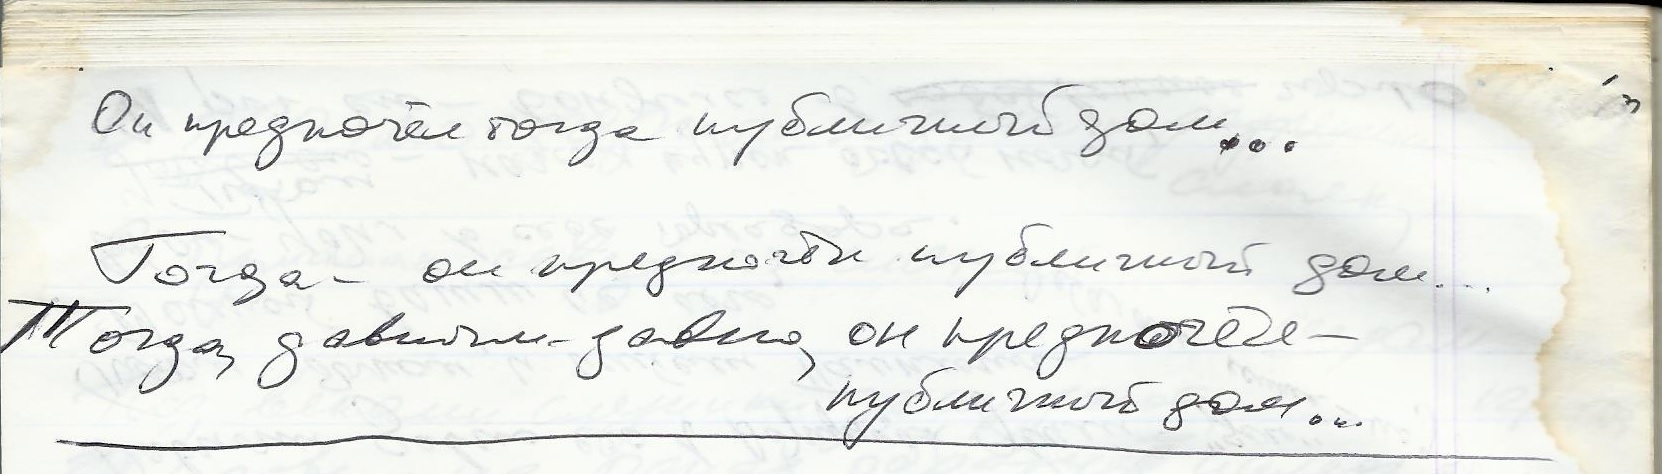 Он предпочёл тогда публичный дом...
Тогда – он предпочёл публичный дом...
Тогда, давным-давно, он предпочёл –
публичный дом...